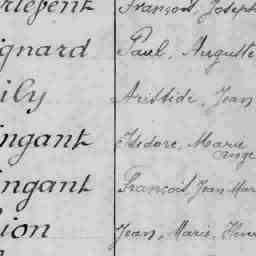 François, Joseph
gnard Paul, Auguste
ily Aristide, Jean
ngant Isidore, Marie
Ange
ngant François, Jean Mar
ion Jean, Marie, Henr